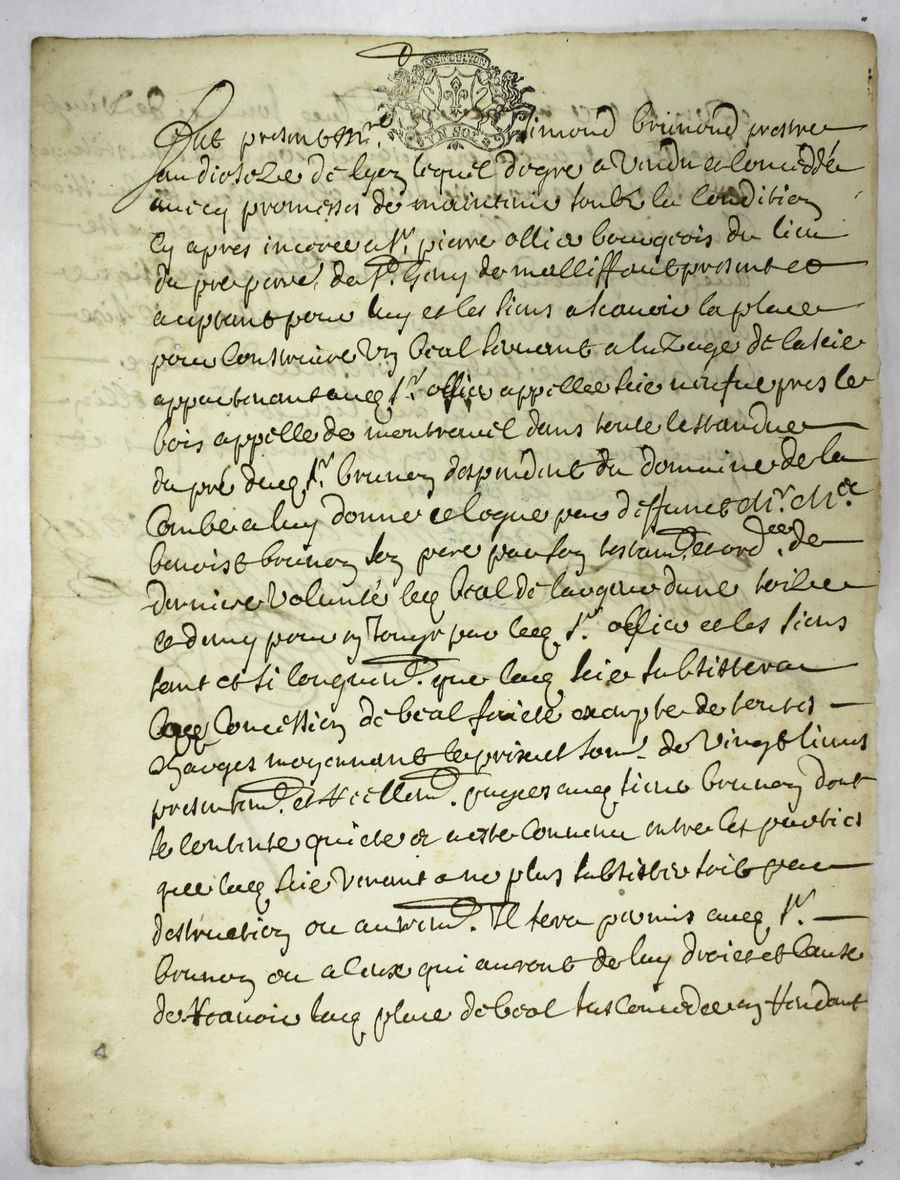 fut present Mre Simond brunond prestre
au diosese de lyon lequel de gre a vendu et concedde
avecq promesses de maintenir soubz la condition
cy apres inceree a sr. pierre ollier bourgeois du lieu
du pre St. Geny de malliffaut present et
acceptant pour luy et les siens a scavoir la place
pour construire un beal servant a luzage de la scie
appartenant audq. sr. ollier appellee scie neufve pres le
bois appelle de montreuil dans toute lestandue
du pré dudq. sr. brunon despendent du domaine de la
Combe a luy donne et legue par deffunct Mr. Me
benoist brunon son pere par son testamt. et ordce. de
derniere volunté leq beal de largeur dune toise
et demy pour en jouyr par ledq. sr. ollier et les siens
tant et si longuemt. que ladq. scie subsistera
ladq concession de beal faicte exempte de toutes
charges moyennant le prix et som. de vingt livres
presentemt. et reellemt. payees audq sieur brunon dont
se contente quicte et a esté convenu entre les parties
que ladq scie venant a ne plus subsister soit par
destruction ou autremt. Il sera permis audq. sr.
brunon ou a ceux qui auront de luy droict et cause
de ravoir ladq place de beal sus concedee en rendant
4